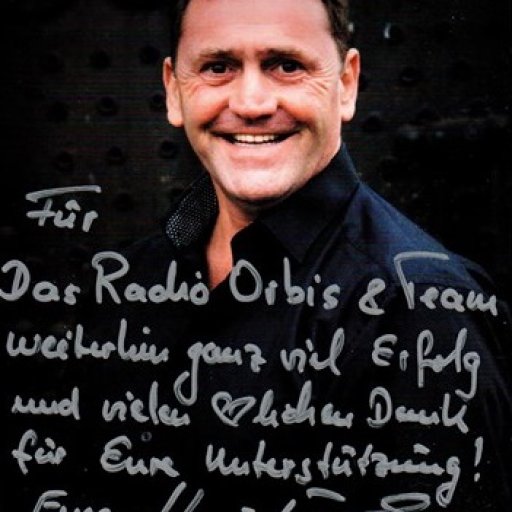 Für
Das Radio Orbis & Team
weiterhin ganz viel Erfolg
und vielen ♡lichen Dank
für Eure Unterstützung!